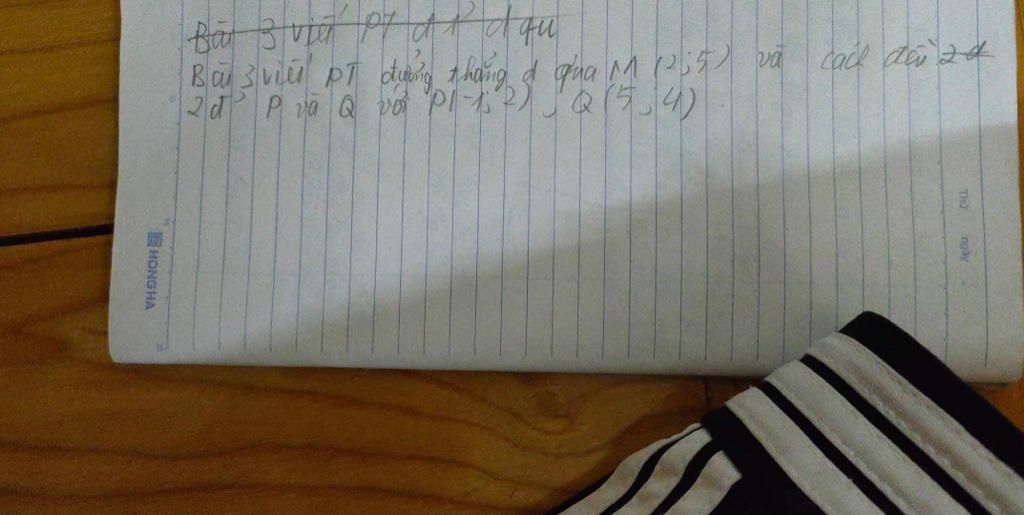 Bài 3 viết PT đt d qu
Bài 3 viết PT đường thẳng d qua M (2;5) và cách đều 2 đ
2 đ' P và Q với P(-1;2) , Q(5;4)
Thứ ngày
HONG HA